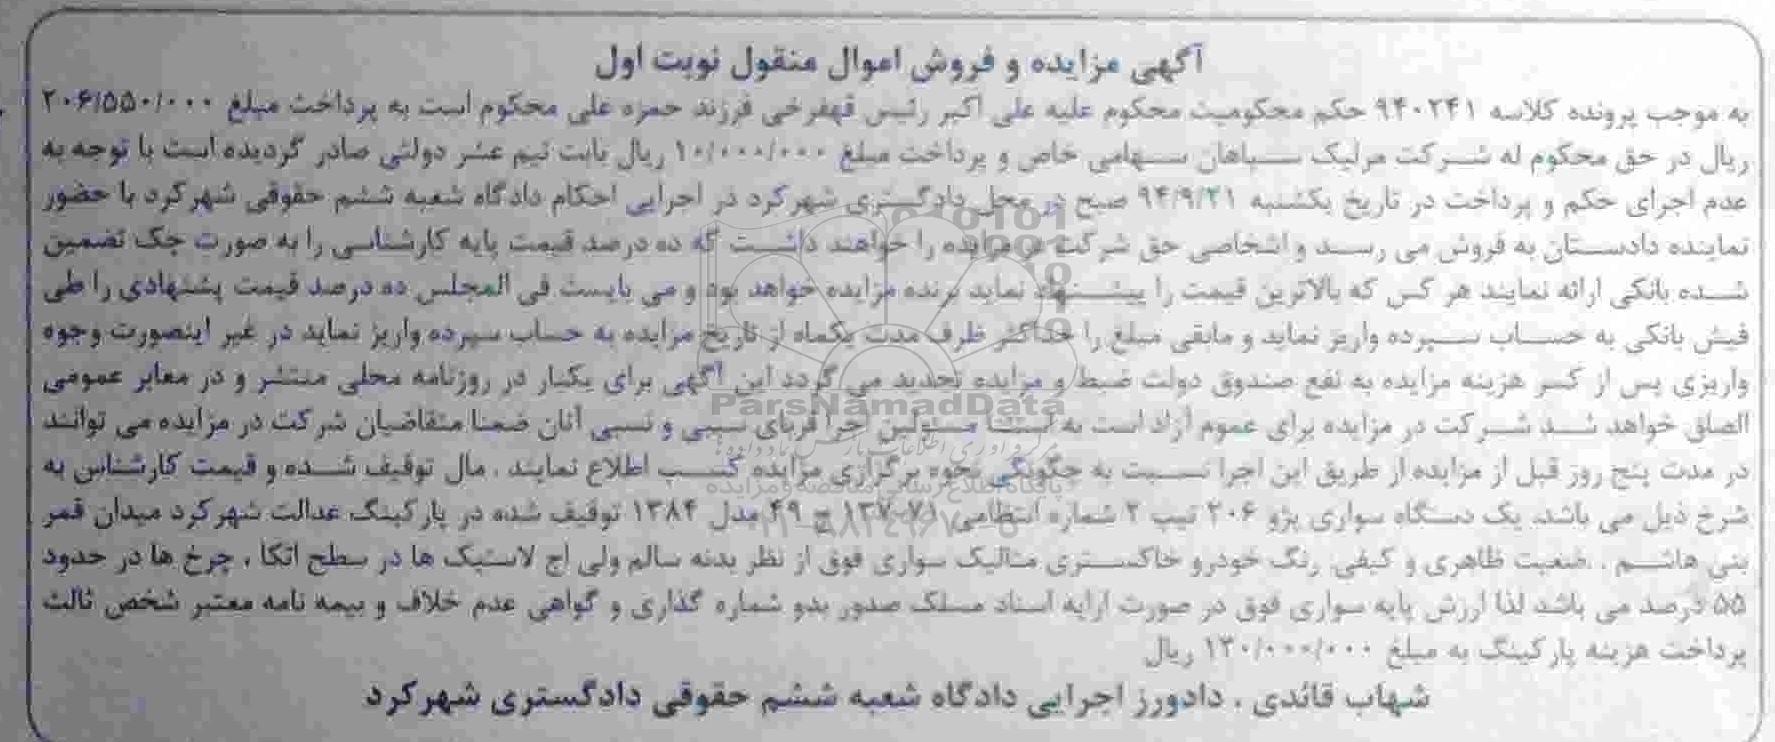 آگهی مزایده و فروش اموال منقول نوبت اول
به موجب پرونده کلاسه ۹۴۰۲۴۱ حکم محکومیت محکوم علیه علی اکبر رئیس قهفرخی فرزند حمزه علی محکوم است به پرداخت مبلغ ۲۰۶/۵۵۰/۰۰۰
ریال در حق محکوم له شرکت مرلیک سپاهان سهامی خاص و پرداخت مبلغ ۱۰/۰۰۰/۰۰۰ ریال بابت نیم عشر دولتی صادر گردیده است با توجه به
عدم اجرای حکم و پرداخت در تاریخ یکشنبه ۹۴/۹/۲۱ صبح در محل دادگستری شهرکرد در اجرایی احکام دادگاه شعبه ششم حقوقی شهرکرد با حضور
نماینده دادستان به فروش می رسد و اشخاصی حق شرکت در مزایده را خواهند داشت که ده درصد قیمت پایه کارشناسی را به صورت چک تضمین
شده بانکی ارائه نمایند هر کس که بالاترین قیمت را پیشنهاد نماید برنده مزایده خواهد بود و می بایست فی المجلس ده درصد قیمت پشنهادی را طی
فیش بانکی به حساب سپرده واریز نماید و مابقی مبلغ را حداکثر ظرف مدت یکماه از تاریخ مزایده به حساب سپرده واریز نماید در غیر اینصورت وجوه
واریزی پس از کسر هزینه مزایده به نفع صندوق دولت ضبط و مزایده تجدید می گردد این آگهی برای یکبار در روزنامه محلی منتشر و در معابر عمومی
الصاق خواهد شد شرکت در مزایده برای عموم آزاد است به استثنا مسئولین اجرا اقربای سببی و نسبی آنان ضمنا متقاضیان شرکت در مزایده می توانند
در مدت پنج روز قبل از مزایده از طریق این اجرا نسبت به چگونگی نحوه برگزاری مزایده کسب اطلاع نمایند . مال توقیف شده و قیمت کارشناس به
شرح ذیل می باشد. یک دستگاه سواری پژو ۲۰۶ تیپ ۲ شماره انتظامی ۷۱-۱۳۷ ج ۴۹ مدل ۱۳۸۴ توقیف شده در پارکینگ عدالت شهرکرد میدان قمر
بنی هاشم . .ضعیت ظاهری و کیفی. رنگ خودرو خاکستری متالیک سواری فوق از نظر بدنه سالم ولی اج لاستیک ها در سطح اتکا ، چرخ ها در حدود
۵۵ درصد می باشد لذا ارزش پایه سواری فوق در صورت ارایه اسناد مسلک صدور بدو شماره گذاری و گواهی عدم خلاف و بیمه نامه معتبر شخص ثالث
پرداخت هزینه پارکینگ به مبلغ ۱۳۰/۰۰۰/۰۰۰ ریال
شهاب قائدی . دادورز اجرایی دادگاه شعبه ششم حقوقی دادگستری شهرکرد
ParsNamadData